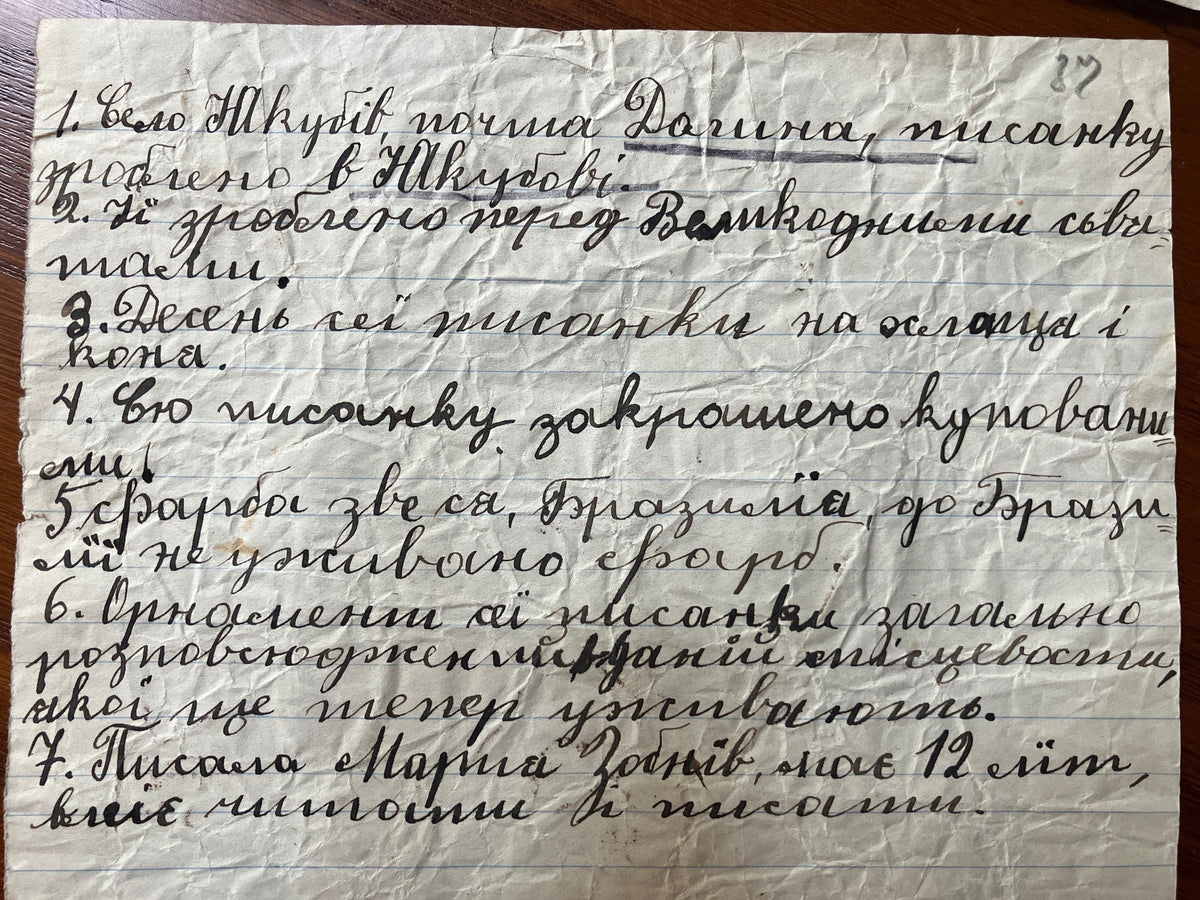 37
1. Село Якубів, почта Долина, писанку
зроблено в Якубові.
2. Її зроблено перед Великодними сьвя=
тами.
3. Десень сеї писанки на хлопця і
коня.
4. Сю писанку закрашено куповани=
ми.
5 Фарба зве ся, Бразилїя, до Брази=
лїї не уживано фарб.
6. Орнамент сеї писанки загально
розповсюджений в даній місцевости,
якої ще тепер уживають.
7. Писала Мария Зобнїв, має 12 лїт,
вміє читати і писати.